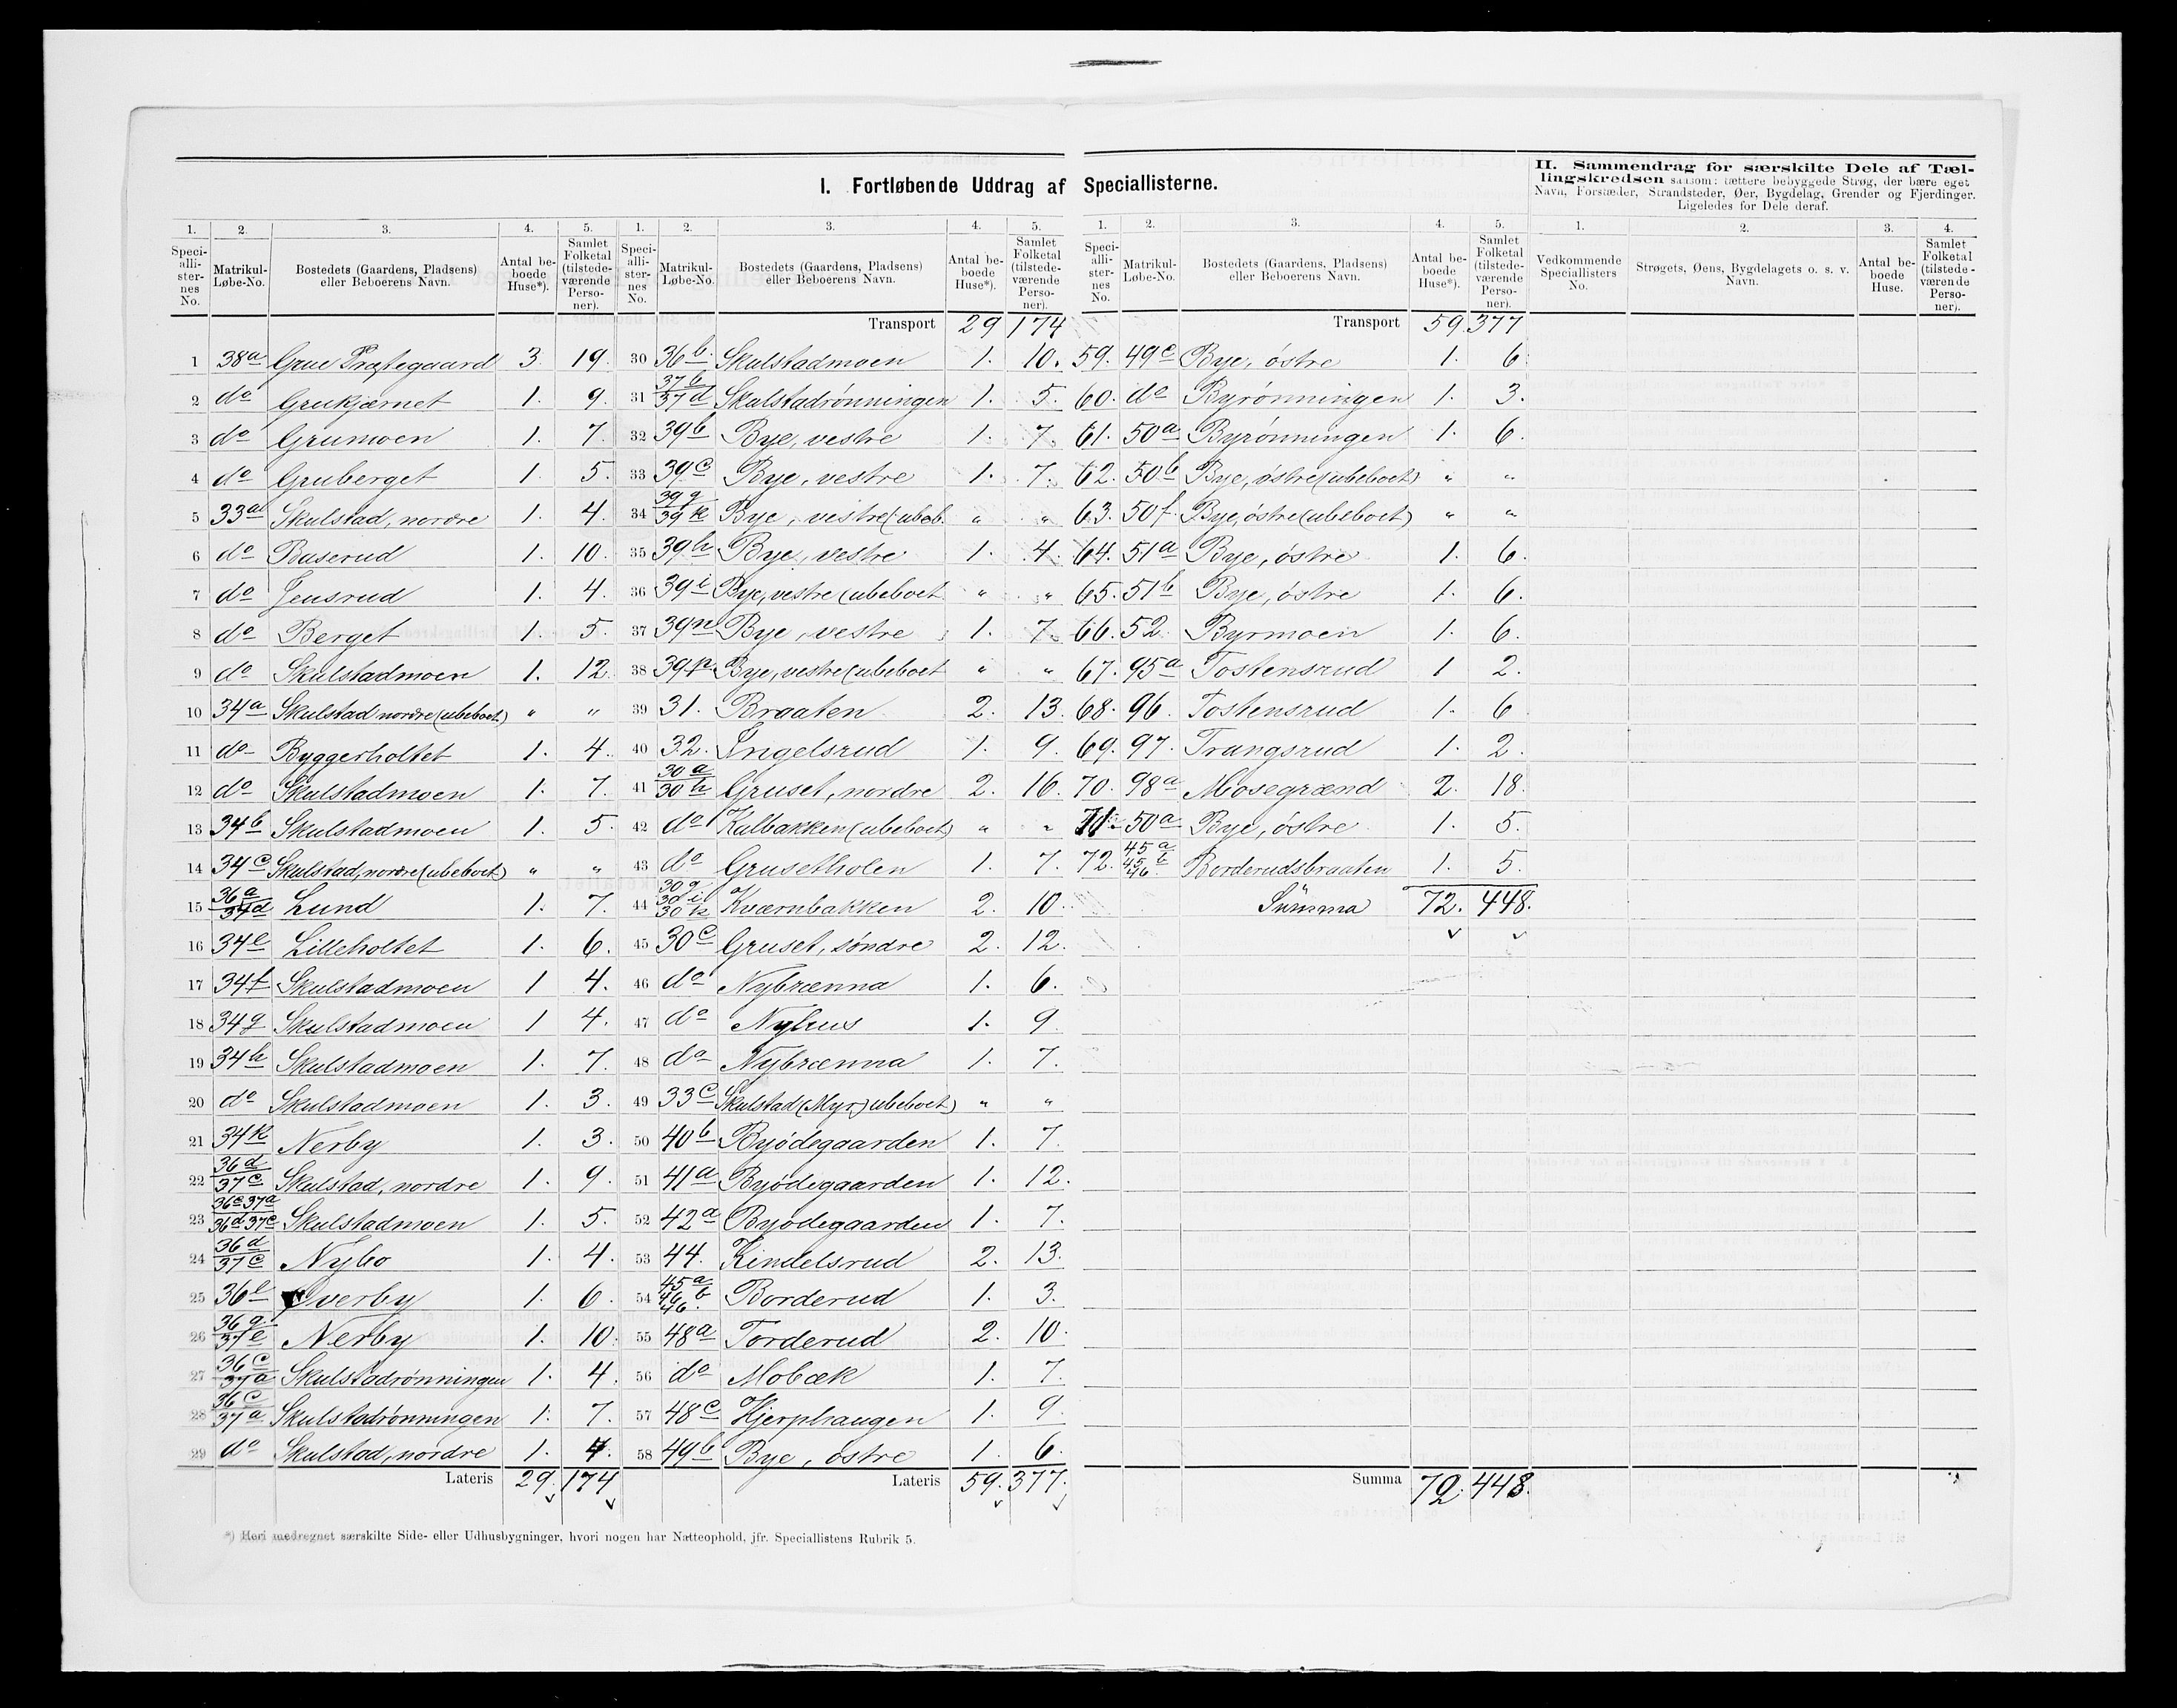 I. Fortløbende Uddrag af Speciallisterne.
II. Sammendrag for særskilte Dele af Tæl-
lingskredsen saasom: tættere bebyggede Strøg, der bære eget
Navn, Forstæder, Strandsteder, Øer, Bygdelag, Grender og Fjerdinger.
Ligeledes for Dele deraf.
1. 2. 3. 4. 5. 1. 2. 3. 4. 5. 1. 2. 3. 4. 5. 1. 2. 3. 4.
Speciallisternes No. Matrikul-Løbe-No. Bostedets (Gaardens, Pladsens) eller Beboerens Navn. Antal beboede Huse*). Samlet Folketal (tilstedeværende Personer).
Speciallisternes No. Matrikul-Løbe-No. Bostedets (Gaardens, Pladsens) eller Beboerens Navn. Antal beboede Huse*). Samlet Folketal (tilstedeværende Personer).
Speciallisternes No. Matrikul-Løbe-No. Bostedets (Gaardens, Pladsens) eller Beboerens Navn. Antal beboede Huse*). Samlet Folketal (tilstedeværende Personer).
Vedkommende Speciallisters No. Strøgets, Øens, Bygdelagets o. s. v. Navn. Antal beboede Huse. Samlet Folketal (tilstedeværende Personer).
1 38a Grue Præstegaard 3. 19.
2 do Grukjærnet 1. 9.
3 do Grumoen 1. 7.
4 do Gruberget 1. 5.
5 33a Skulstad, nordre 1. 4.
6 do Baserud 1. 10.
7 do Jensrud 1. 4.
8 do Berget 1. 5.
9 do Skulstadmoen 1. 12.
10 34a Skulstad nordre (ubeboet) " "
11 do Byggerholtet 1. 4.
12 do Skulstadmoen 1. 7.
13 34b Skulstadmoen 1. 5.
14 34c Skulstad, nordre (ubeboet) " "
15 36a 34d Lund 1. 7.
16 34e Lilleholtet 1. 6.
17 34f Skulstadmoen 1 4.
18 34g Skulstadmoen 1 4.
19 34h Skulstadmoen 1. 7.
20 do Skulstadmoen 1. 3.
21 34k Nerby 1. 3.
22 36d 37c Skulstad, nordre 1. 9.
23 36c 37a 36d 37c Skulstadmoen 1. 5.
24 36d 37c Nybo 1. 4.
25 36e Øverby 1. 6.
26 36g 37e Nerby 1. 10.
27 36c 37a Skulstadrønningen 1. 4.
28 36c 37a Skulstadrønningen 1. 7.
29 do Skulstad, nordre 1. 4.
Lateris 29. 174
Transport 29 174
30 36b Skulstadmoen 1. 10.
31 37b 37d Skulstadrønningen 1. 5.
32 39b Bye, vestre 1. 7.
33 39c Bye, vestre 1. 7.
34 39g 39k Bye, vestre (ubeb. " "
35 39h Bye, vestre 1. 4.
36 39i Bye, vestre (ubeboet " "
37 39n Bye, vestre 1. 7.
38 39p Bye, vestre (ubeboet " "
39 31. Braaten 2. 13.
40 32. Ingelsrud 1. 9.
41 30a 30h Gruset, nordre 2. 16.
42 do Kalbakken (ubeboet) " "
43 do Grusetholen 1. 7.
44 30g 30i 30k Kværnbakken 2. 10.
45 30c Gruset, søndre 2. 12.
46 do Nybrænna 1. 6.
47 do Nyhus 1. 9.
48 do Nybrænna 1. 7.
49 33c Skulstad (Myr) ubeboet) " "
50 40b Byødegaarden 1. 7.
51 41a Byødegaarden 1. 12.
52 42a Byødegaarden 1. 7.
53 44. Kindelsrud 2. 13.
54 45a 46b 46. Borderud 1. 3.
55 48a Torderud 2. 10.
56 do Mobæk 1. 7.
57 48c Hjerphaugen 1. 9.
58 49b Bye, østre 1. 6.
Lateris 59. 377.
Transport 59. 377
59. 49c Bye, østre 1. 6.
60. do Byrønningen 1. 3.
61. 50a Byrønningen 1. 6.
62. 50b Bye, østre (ubeboet) " "
63. 50f. Bye, østre (ubeboet) " "
64. 51a Bye, østre 1. 6.
65. 51b Bye, østre 1. 6.
66. 52. Byrmoen 1. 6.
67. 95a Tostensrud 1 2.
68. 96. Tostensrud 1. 6
69. 97. Trangsrud 1. 2.
70. 98a Mosegrænd 2. 18.
71. 50a Bye, østre 1. 5.
72. 45a 45b 46. Borderudsbraaten 1. 5.
Summa 72. 448.
Summa 72. 448.
*) Heri medregnet særskilte Side- eller Udhusbygninger, hvori nogen har Natteophold, jfr. Speciallistens Rubrik 5.